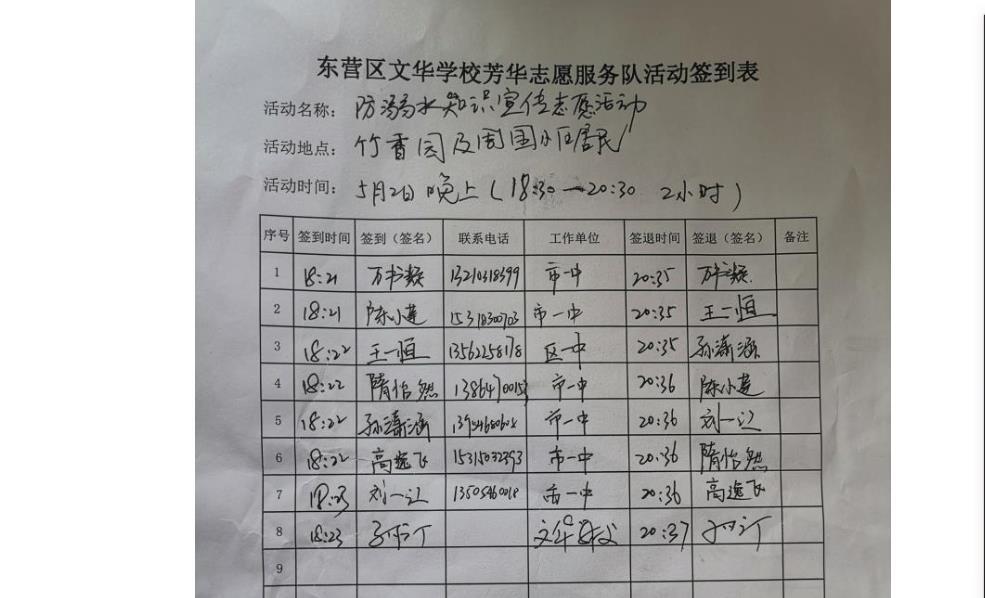 东营区文华学校芳华志愿服务队活动签到表
活动名称: 防溺水知识宣传志愿活动
活动地点: 竹香园及周围小区居民
活动时间: 5月2日 晚上 (18:30—20:30 2小时)
序号 签到时间 签到（签名） 联系电话 工作单位 签退时间 签退（签名） 备注
1 18:21 市一中 20:35
2 18:21 陈小莲 市一中 20:35 王一恒
3 18:22 王一恒 13562258178 区一中 20:35 孙潇涵
4 18:22 隋怡然 市一中 20:36 陈小莲
5 18:22 孙潇涵 市一中 20:36 刘一江
6 18:22 高逸飞 15315032393 市一中 20:36 隋怡然
7 18:23 刘一江 市一中 20:36 高逸飞
8 18:23 文华学校 20:37
9